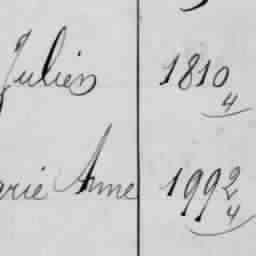 Julien 1810
4
arie Anne 1992
4